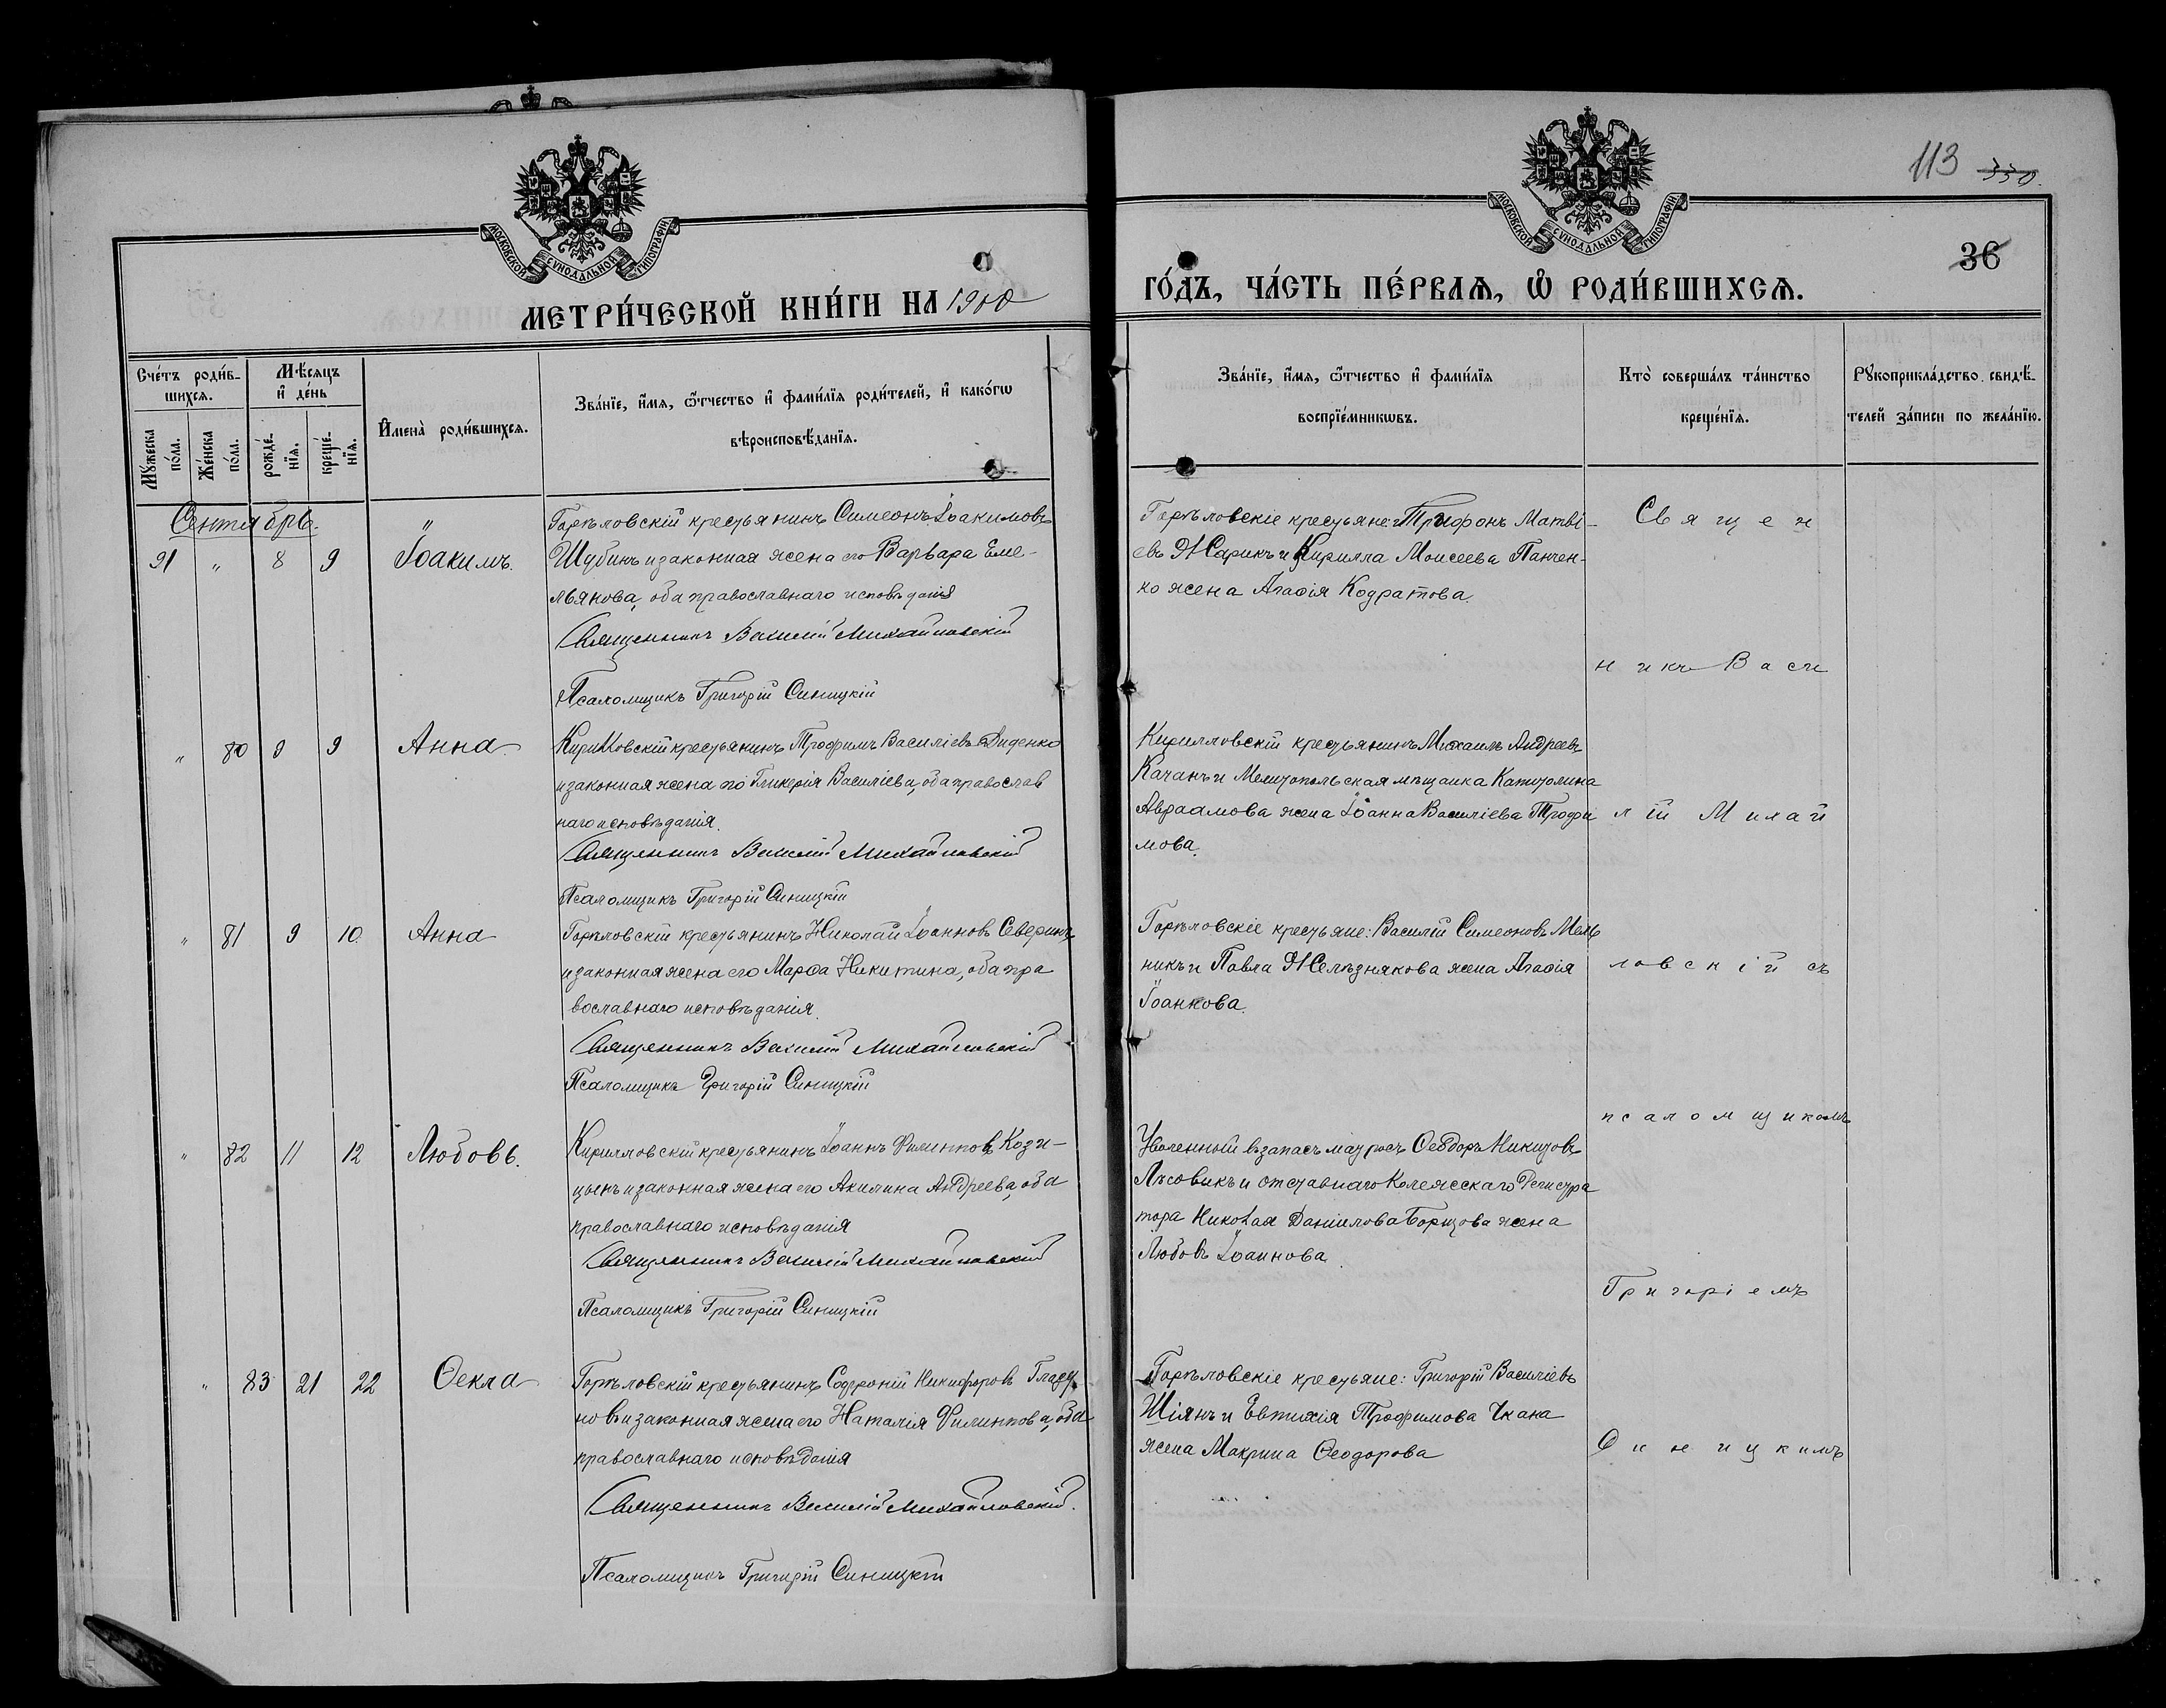 113 330.
36
МОСКОВСКОЙ СѴНОДАЛЬНОЙ ТИПОГРАФІИ
МОСКОВСКОЙ СѴНОДАЛЬНОЙ ТИПОГРАФІИ
МЕТРИ́ЧЕСКОЙ КНИ́ГИ НА 1900
ГО́ДЪ, ЧА́СТЬ ПЕ́РВАѦ, Ѡ РОДИ́ВШИХСѦ.
Сче́тъ роди́в-
шихсѧ.
Мѣ́сѧцъ
и҆ де́нь
Мꙋ́жеска по́ла.
Же́нска по́ла.
рожде́-
нїѧ.
креще́-
нїѧ.
И҆мена̀ роди́вшихсѧ.
Зва́нїе, и҆́мѧ, ѻ҆́тчество и҆ фами́лїѧ роди́телей, и҆ како́гѡ
вѣроисповѣ́данїѧ.
Зва́нїе, и҆́мѧ, ѻ҆́тчество и҆ фами́лїѧ
воспрїе́мникѡвъ.
Кто̀ соверша́лъ та́инство
креще́нїѧ.
Рꙋкоприкла́дство свидѣ́-
телей за́писи по жела́нїю.
Сентябрь.
91 " 8 9 Іоакимъ.
Горѣловскій крестьянинъ Симеонъ Іоакимовъ
Шубинъ и законная жена его Варвара Еме-
льянова, оба православнаго исповѣданія
Священникъ Василій Михайловскій
Псаломщикъ Григорій Синицкій
Горѣловскіе крестьяне: Трифонъ Матві-
евъ Жарикъ и Кирилла Моисеева Панчен-
ко жена Агафія Кодратова.
" 80 9 9 Анна
Кирилловскій крестьянинъ Трофимъ Василіевъ Диденко
и законная жена его Гликерія Василіева, оба православ
наго исповѣданія.
Священникъ Василій Михайловскій
Псаломщикъ Григорій Синицкій
Кирилловскій крестьянинъ Михаилъ Андреевъ
Качанъ и Мелитопольская мѣщанка
Авраамова жена Іоанна Василіева Трофи
мова.
" 81 9 10 Анна
Горѣловскій крестьянинъ Николай Іоанновъ Северинъ
и законная жена его Марѳа Никитина, оба пра
вославнаго исповѣданія.
Священникъ Василій Михайловскій
Псаломщикъ Григорій Синицкій
Горѣловскіе крестьяне: Василій Симеоновъ Мель
никъ и Павла Желѣзнякова жена Агафія
Іоанкова.
" 82 11 12 Любовь.
Кирилловскій крестьянинъ Іоаннъ Филиповъ Кози-
цынъ и законная жена его Акилина Андреева, оба
православнаго исповѣданія
Священникъ Василій Михайловскій
Псаломщикъ Григорій Синицкій
Уволенный въ запасъ матросъ Ѳеодоръ Никитовъ
Лѣсовикъ и отставнаго Колежсскаго Регистра
тора Николая Даніилова Борщова жена
Любовь Іоаннова.
" 83 21 22 Ѳекла
Горѣловскій крестьянинъ Софроній Никифоровъ
новъ и законная жена его Наталія Филиппова, оба
православнаго исповѣданія
Священникъ Василій Михайловскій.
Псаломщикъ Григорій Синицкій
Горѣловскіе крестьяне: Григорій Василіевъ
Шіянъ и Евтихія Трофимова Ткача
жена Макрина Ѳеодорова
Священ
никъ Васи
лій Михай
ловскій съ
псаломщикомъ
Григоріемъ
Синицкимъ